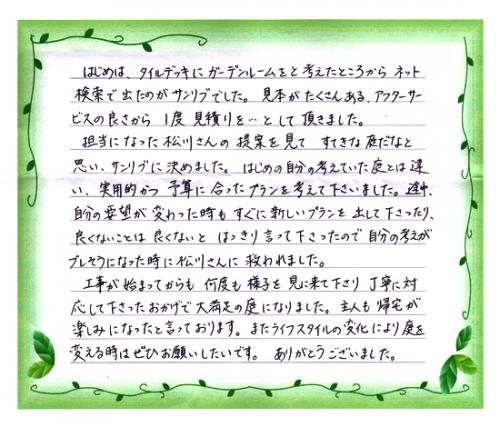 はじめは、タイルデッキにガーデンルームをと考えたところから ネット
検索で出たのがサンリブでした。見本がたくさんある、アフターサー
ビスの良さから 1度見積りを…として頂きました。
担当になった松川さんの提案を見て すてきな庭だなと
思い、サンリブに決めました。はじめの自分の考えていた庭とは違
い、実用的かつ 予算に合ったプランを考えて下さいました。途中、
自分の要望が変わった時もすぐに新しいプランを出して下さったり、
良くないことは良くないと はっきり言って下さったので自分の考えが
ブレそうになった時に松川さんに救われました。
工事が始まってからも何度も様子を見に来て下さり丁寧に対
応して下さったおかげで大満足の庭になりました。主人も帰宅が
楽しみになったと言っております。またライフスタイルの変化により庭を
変える時はぜひお願いしたいです。ありがとうございました。